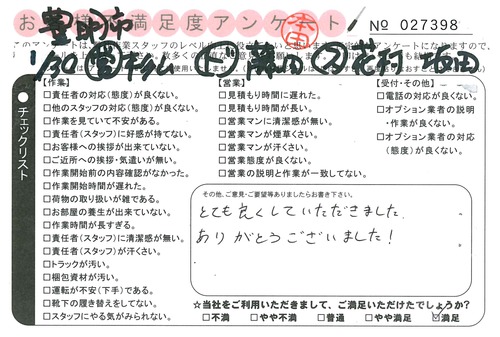 豊明市
お客様満足度アンケート
№ 027398
1/30 営 杉山 花村 坂田
チェックリスト
【作業】
□責任者の対応(態度)が良くない。
□他のスタッフの対応(態度)が良くない。
□作業を見ていて不安がある。
□責任者(スタッフ)に好感が持てない。
□お客様への挨拶が出来ていない。
□ご近所への挨拶・気遣いが無い。
□作業開始前の内容確認がなかった。
□作業開始時間が遅れた。
□荷物の取り扱いが雑である。
□お部屋の養生が出来ていない。
□作業時間が長すぎる。
□責任者(スタッフ)に清潔感が無い。
□責任者(スタッフ)が汗くさい。
□トラックが汚い。
□梱包資材が汚い。
□運転が不安(下手)である。
□靴下の履き替えをしてない。
□スタッフにやる気がみられない。
【営業】
□見積もり時間に遅れた。
□見積もり時間が長い。
□営業マンに清潔感が無い。
□営業マンが煙草くさい。
□営業マンが汗くさい。
□営業態度が良くない。
□営業の説明と作業が一致してない。
【受付・その他】
□電話の対応が良くない。
□オプション業者の説明
・作業が良くない。
□オプション業者の対応
(態度)が良くない。
その他、ご意見・ご要望等ありましたらお書き下さい。
とても良くしていただきました。
ありがとうございました!
☆当社をご利用いただきまして、ご満足いただけたでしょうか?
□不満 □やや不満 □普通 □やや満足 ☑満足